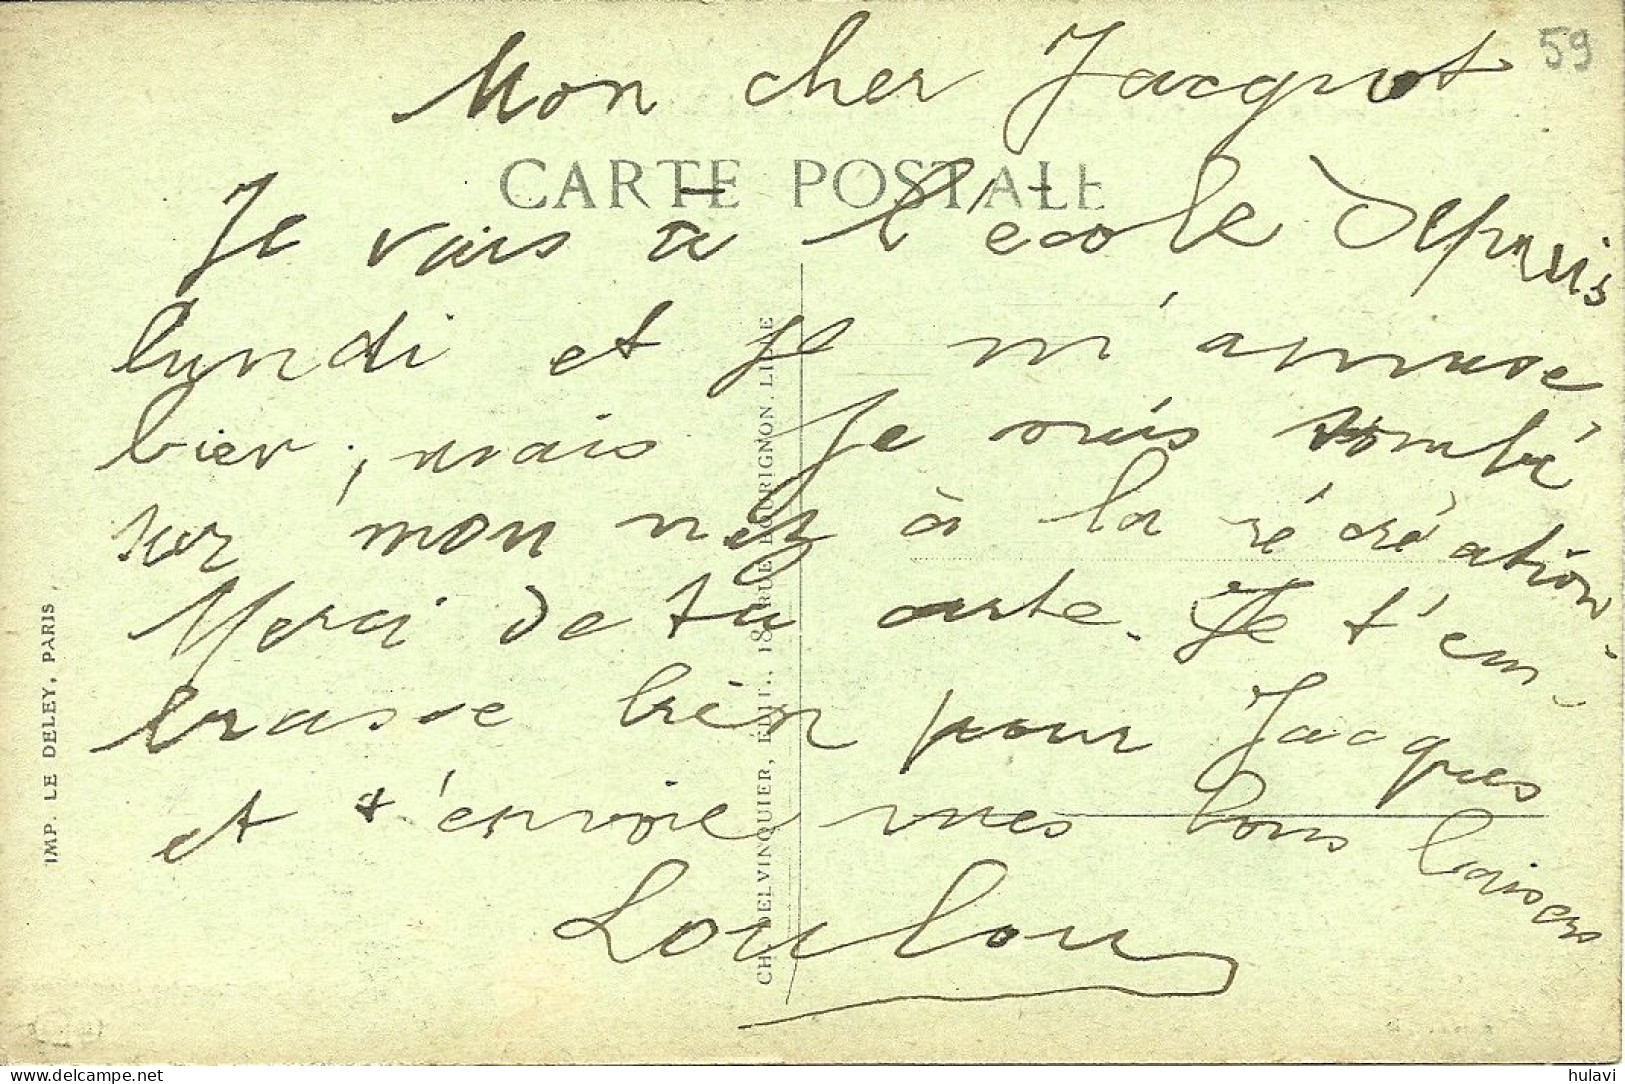 59
Mon cher Jacquot
CARTE POSTALE
Je vais à l'école depuis
lundi et je m'amuse
bien ; mais je suis tombé
sur mon nez à la récréation.
Merci de ta carte. Je t'em-
brasse bien pour Jacques
et t'envoie mes bons baisers
Loulou
IMP. LE DELEY, PARIS.
CH. DELVINQUIER, ÉDIT., 18, RUE BOURIGNON. LILLE
hulavi